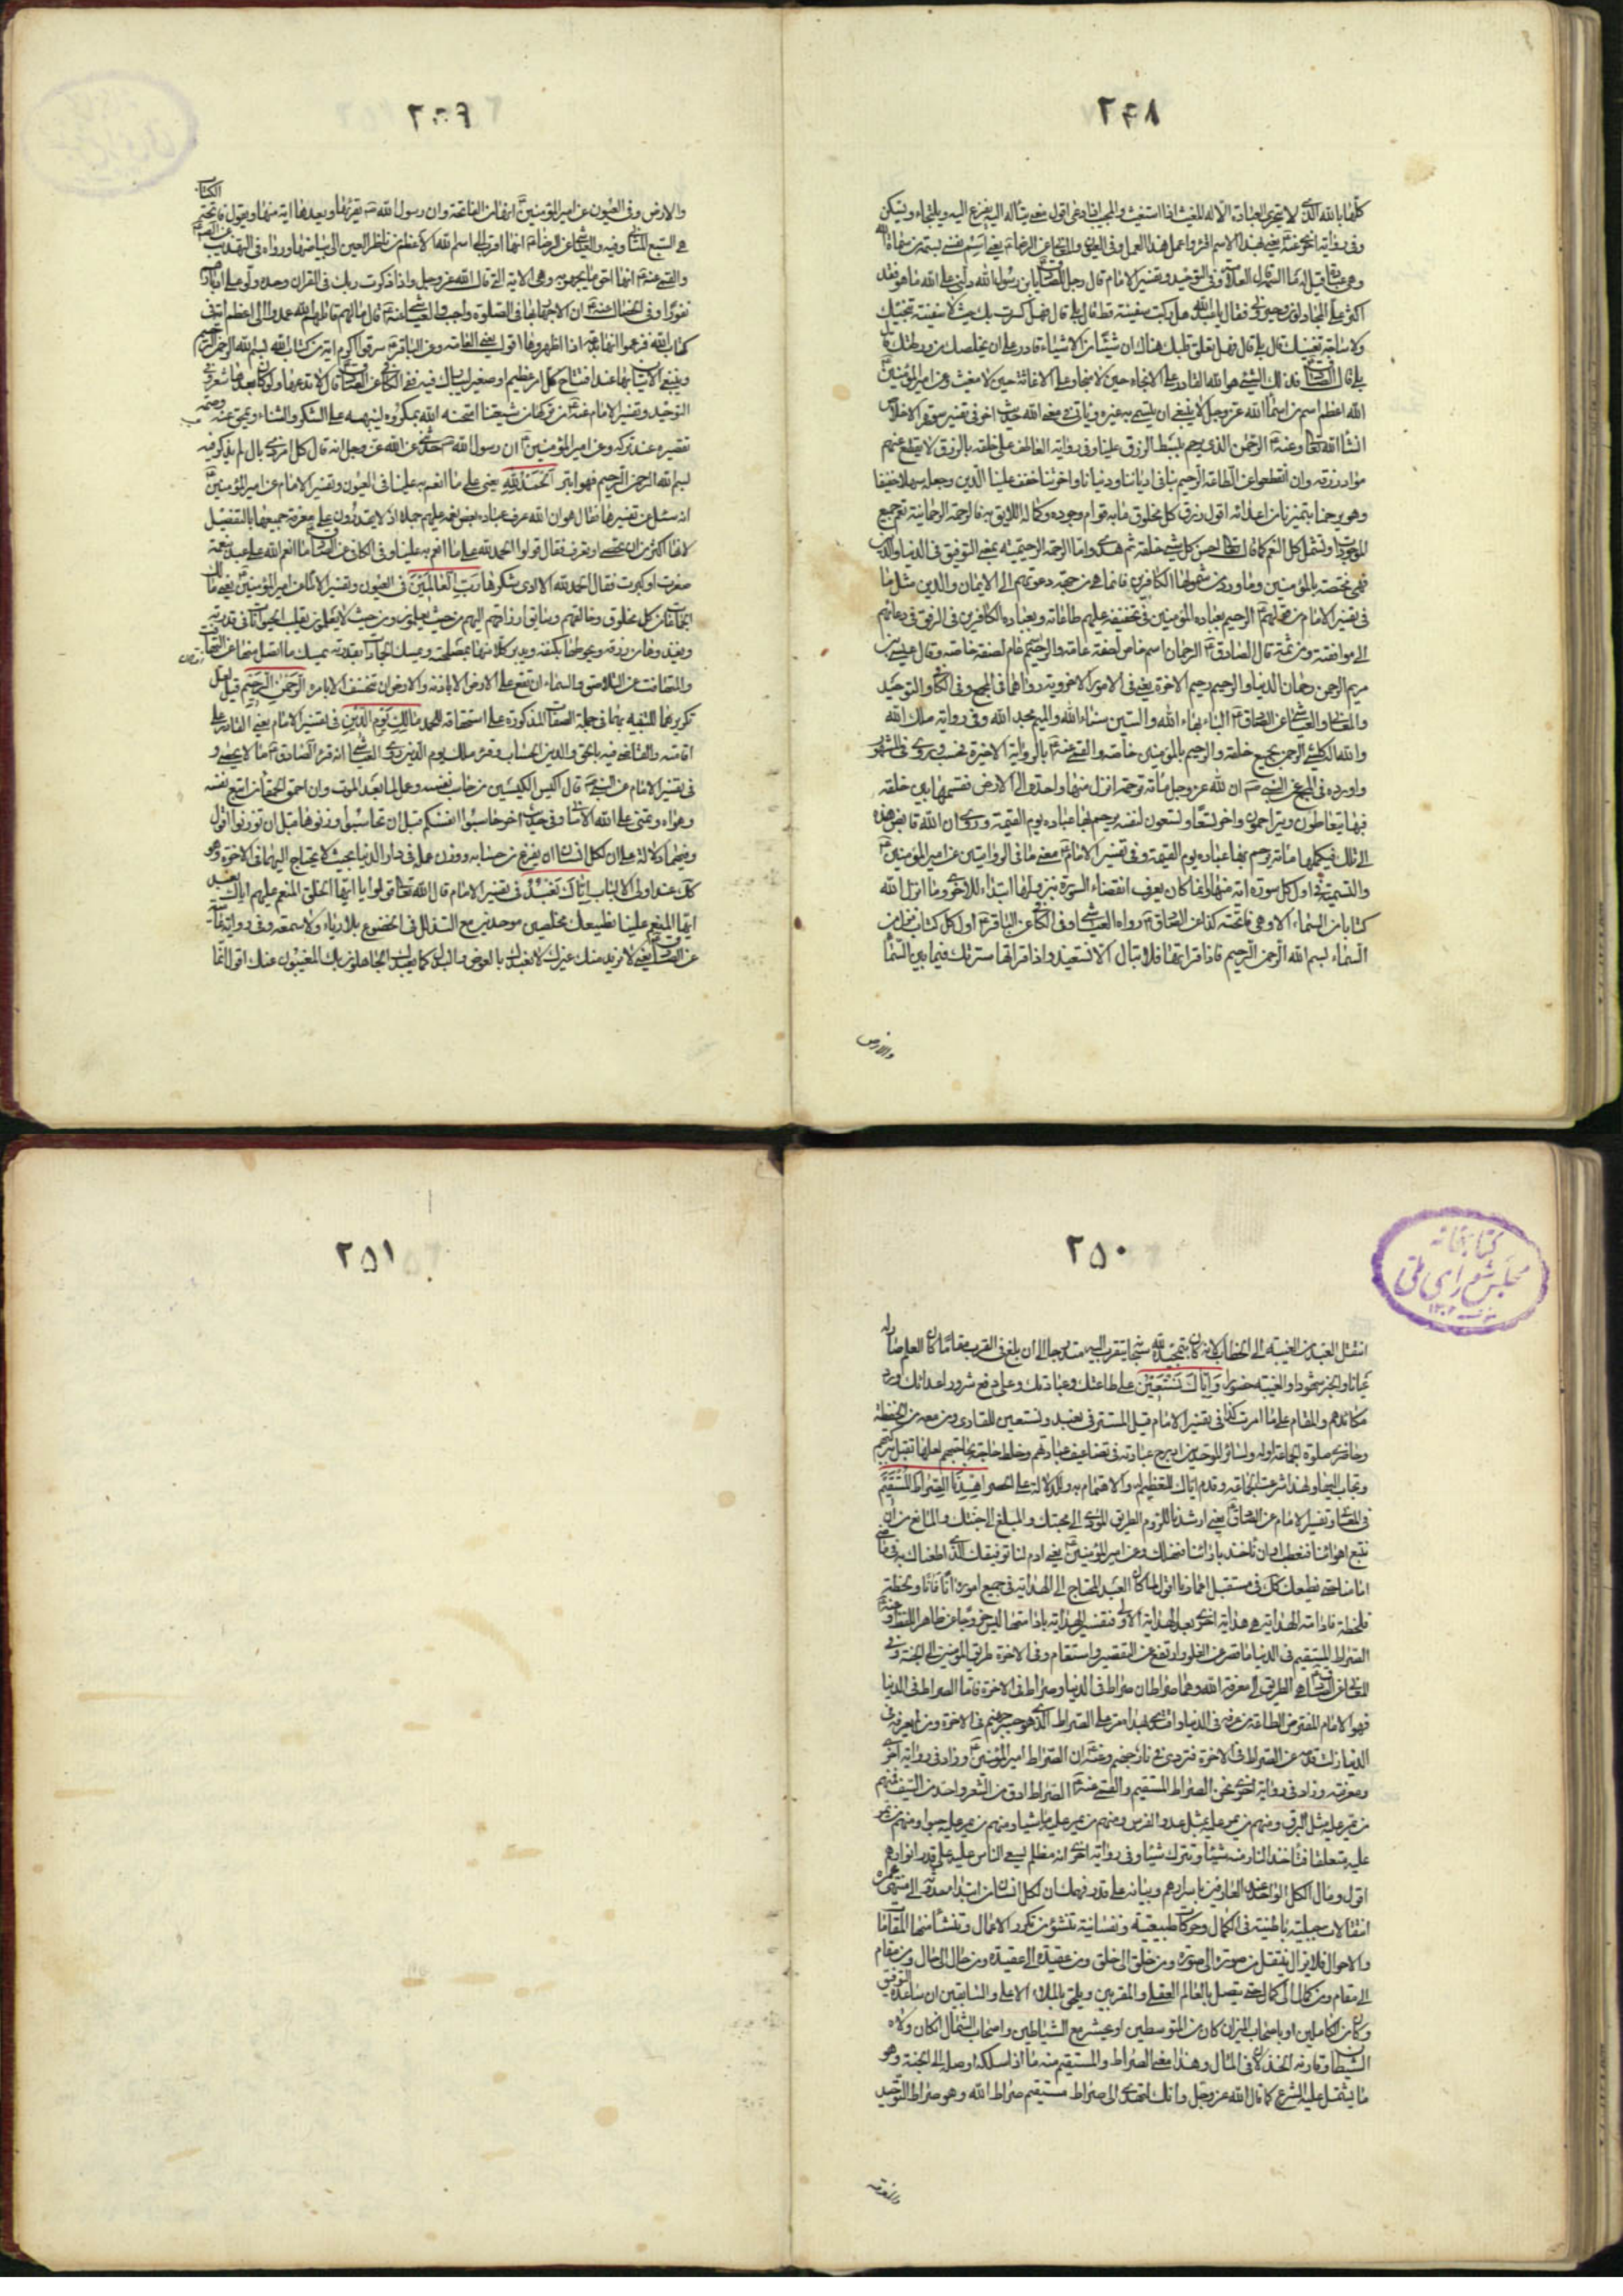 ٢٤٨
كلها بالله الذي لا يحق العبادة الا له المغيث اذا استغيث والمجيب اذا دعي اقول معنى يتأله اليه يفزع اليه ويلتجاء ويسكن
وفي رواية اخرى عنه يعني بهذا الاسم اقرء واعمل هذا العمل وفي العيون والمعاني عن الرضا يعني اسم نفسي بسمة من سمات الله
وهي العبادة قيل له ما السمة قال العلامة وفي التوحيد وتفسير الامام قال رجل للصادق يا بن رسول الله دلني على الله ما هو فقد
اكثر علي المجادلون وحيروني فقال يا عبد الله هل ركبت سفينة قط قال بلى قال فهل كسرت بك حيث لا سفينة تنجيك
ولا سباحة تغنيك قال بلى قال فهل تعلق قلبك هناك ان شيئا من الاشياء قادر على ان يخلصك من ورطتك قال
بلى قال الصادق فذلك الشيء هو الله القادر على الانجاء حين لا منجي وعلى الاغاثة حين لا مغيث وعن امير المؤمنين
الله اعظم اسم من اسماء الله عز وجل لا ينبغي ان يتسمى به غيره وياتي في معنى الله حديث اخر في تفسير سورة الاخلاص
انشاء الله تعالى وعنه الرحمن الذي يرحم ببسط الرزق علينا وفي رواية العاطف على خلقه بالرزق لا يقطع عنهم
مواد رزقه وان انقطعوا عن طاعته الرحيم بنا في ادياننا ودنيانا واخرتنا خفف علينا الدين وجعله سهلا خفيفا
وهو يرحمنا بتميزنا من اعدائه اقول رزق كل مخلوق ما به قوام وجوده وكماله اللايق به فالرحمة الرحمانية تعم جميع
الموجودات وتشمل كل النعم كما قال الله تعالى احسن كل شيء خلقه ثم هدى واما الرحمة الرحيمية بمعنى التوفيق في الدنيا والدين
فهي مختصة بالمؤمنين وما ورد من شمولها الكافرين فانما هي من جهة دعوتهم الى الايمان والدين مثل ما
في تفسير الامام من قولهم الرحيم بعباده المؤمنين في تخفيفه عليهم طاعاته وبعباده الكافرين في الرفق في دعائهم
الى موافقته ومن ثمة قال الصادق الرحمان اسم خاص لصفة عامة والرحيم اسم عام لصفة خاصة وقال عيسى بن
مريم الرحمن رحمان الدنيا والرحيم رحيم الاخرة يعني في الامور الاخروية رواهما في المجمع وفي الكافي والتوحيد
والمعاني والعياشي عن الصادق الباء بهاء الله والسين سناء الله والميم مجد الله وفي رواية ملك الله
والله اله كل شيء الرحمن بجميع خلقه والرحيم بالمؤمنين خاصة والقمي عنه بالرواية الاخيرة فحسب وروى في المشهور
واورده في المجمع عن النبي ان لله عز وجل مأة رحمة انزل منها واحدة الى الارض فقسمها بين خلقه
فبها يتعاطون ويتراحمون واخر تسعا وتسعون لنفسه يرحم بها عباده يوم القيمة وروى ان الله قابض هذه
الى تلك فيكملها مأة يرحم بها عباده يوم القيمة وفي تفسير الامام معنى ما في الروايتين عن امير المؤمنين
والتسمية في اول كل سورة اية منها وانما كان يعرف انقضاء السورة بنزولها ابتداء للاخرى وما انزل الله
كتابا من السماء الا وهي فاتحته كذا عن الصادق رواه العياشي وفي الكافي عن الباقر اول كل كتاب نزل من
السماء بسم الله الرحمن الرحيم فاذا قراتها فلا تبال الا تستعيذ واذا قراتها سترتك فيما بين السماء
والارض
٢٤٩
والارض وفي العيون عن امير المؤمنين انها من الفاتحة وان رسول الله يقرئها ويعدها اية منها ويقول فاتحة الكتاب
هي السبع المثاني وفيه والعياشي عن الرضا انها اقرب الى اسم الله الاعظم من ناظر العين الى بياضها ورواه في التهذيب عن الصادق
والقمي عنه انها احق ما يجهر به وهي الاية التي قال الله عز وجل واذا ذكرت ربك في القران وحده ولوا على ادبارهم
نفورا وفي الخصال عنه ان الاجهار بها في الصلوة واجب والعياشي عنه قال ما لهم قاتلهم الله عمدوا الى اعظم اية في
كتاب الله فزعموا انها بدعة اذا اظهروها اقول يعني العامة وعن الباقر سرقوا اكرم اية من كتاب الله بسم الله الرحمن الرحيم
وينبغي الاتيان بها عند افتتاح كل امر عظيم او صغير ليبارك فيه ففي الكافي عن الصادق قال لا تدعها ولو كان بعدها شعر وفي
التوحيد وتفسير الامام عنه من تركها من شيعتنا امتحنه الله بمكروه لينبهه على الشكر والثناء ويمحق عنه وصمة
تقصيره عند تركه وعن امير المؤمنين ان رسول الله حدثني عن الله عز وجل انه قال كل امر ذي بال لم يذكر فيه
بسم الله الرحمن الرحيم فهو ابتر الحمد لله يعني على ما انعم به علينا في العيون وتفسير الامام عن امير المؤمنين
انه سئل عن تفسيرها فقال هو ان الله عرف عباده بعض نعمه عليهم جملا اذ لا يقدرون على معرفة جميعها بالتفصيل
لانها اكثر من ان تحصى او تعرف فقال قولوا الحمد لله على ما انعم به علينا وفي الكافي عن الصادق ما انعم الله على عبد بنعمة
صغرت او كبرت فقال الحمد لله الا ادى شكرها رب العالمين في العيون وتفسير الامام عن امير المؤمنين يعني مالك
الجماعات من كل مخلوق وخالقهم وسائق ارزاقهم اليهم من حيث يعلمون ومن حيث لا يعلمون يقلب الحيوانات في قدرته
ويغذوها من رزقه ويحوطها بكنفه ويدبر كلا منها بمصلحته ويمسك الجمادات بقدرته يمسك ما اتصل منها عن التهافت
والمتهافت عن التلاصق والسماء ان تقع على الارض الا باذنه والارض ان تنخسف الا بامره الرحمن الرحيم قيل لعل
تكريرهما للتنبيه بهما في جملة الصفات المذكورة على استحقاقه الحمد مالك يوم الدين في تفسير الامام يعني القادر على
اقامته والقاضي فيه بالحق والدين الحساب وقرء ملك يوم الدين روى العياشي انه قرء الصادق ما لا يحصى و
في تفسير الامام عن النبي قال اكيس الكيسين من حاسب نفسه وعمل لما بعد الموت وان احمق الحمقاء من اتبع نفسه
وهواه وتمنى على الله الاماني وفي حديث اخر حاسبوا انفسكم قبل ان تحاسبوا وزنوها قبل ان توزنوا اقول
وفيهما دلالة على ان لكل انسان ان يفرغ من حسابه ووزن عمله في دار الدنيا بحيث لا يحتاج اليهما في الاخرة وهو
كك عند اولى الالباب اياك نعبد في تفسير الامام قال الله تعالى قولوا يا ايها الخلق المنعم عليهم اياك نعبد
ايها المنعم علينا نطيعك مخلصين موحدين مع التذلل في الخضوع بلا رياء ولا سمعة وفي رواية عامية
عن الصادق يعني لا نريد منك غيرك لا نعبدك بالعوض والبدل كما يعبدك الجاهلون بك المغيبون عنك اقول انما
٢٥٠
كتابخانه
مجلس شورای ملی
انتقل العبد من الغيبة الى الخطاب لانه كان بتمجيده لله شيئا يتقرب اليه متدرجا الى ان بلغ في القرب مقاما كان العلم صار له
عيانا والخبر شهودا والغيبة حضورا واياك نستعين على طاعتك وعبادتك وعلى دفع شرور اعدائك ورد
مكائدهم والمقام على ما امرت كذا في تفسير الامام قيل المستتر في نعبد ونستعين للقاري ومن معه من الحفظة
وحاضري صلوة الجماعة او له ولسائر الموحدين ادرج عبادته في تضاعيف عبادتهم وخلط حاجته بحاجتهم لعلها تقبل ببركتهم
وتجاب اليها ولهذا شرعت الجماعة وقدم اياك للتعظيم له والاهتمام به وللدلالة على الحصر اهدنا الصراط المستقيم
في المعاني وتفسير الامام عن الصادق يعني ارشدنا للزوم الطريق المؤدي الى محبتك والمبلغ الى جنتك والمانع من ان
نتبع اهوائنا فنعطب او ان ناخذ بارائنا فنهلك وعن امير المؤمنين يعني ادم لنا توفيقك الذي اطعناك به في ماضي
ايامنا حتى نطيعك كك في مستقبل اعمارنا اقول لما كان العبد المحتاج الى الهداية في جميع اموره انا فانا ولحظة
فلحظة فادامة الهداية هي هداية اخرى بعد الهداية الاولى فتفسير الهداية بادامتها ليس خروجا عن ظاهر اللفظ وعنه
الصراط المستقيم في الدنيا ما قصر عن الغلو وارتفع عن التقصير واستقام وفي الاخرة طريق المؤمنين الى الجنة وفي
المعاني عن الصادق هي الطريق الى معرفة الله وهما صراطان صراط في الدنيا وصراط في الاخرة فاما الصراط في الدنيا
فهو الامام المفترض الطاعة من عرفه في الدنيا واقتدى بهداه مر على الصراط الذي هو جسر جهنم في الاخرة ومن لم يعرفه في
الدنيا زلت قدمه عن الصراط في الاخرة فتردى في نار جهنم وعنه ان الصراط امير المؤمنين وزاد في رواية اخرى
ومعرفته وزاد في رواية اخرى نحن الصراط المستقيم والقمي عنه الصراط ادق من الشعر واحد من السيف فمنهم
من يمر عليه مثل البرق ومنهم من يمر عليه مثل عدو الفرس ومنهم من يمر عليه ماشيا ومنهم من يمر عليه حبوا ومنهم من يمر
عليه متعلقا فتاخذ النار منه شيئا وتترك شيئا وفي رواية اخرى انه مظلم يسعى الناس عليه على قدر انوارهم
اقول ومال الكل الى واحد عند العارفين باسرارهم وبيانه على قدر فهمك ان لكل انسان من ابتداء حدوثه الى منتهى عمره
انتقالات جبلية باطنية في الكمال وحركات طبيعية ونفسانية تنشؤ من تكرر الاعمال وتنشأ منها المقامات
والاحوال فلا يزال ينتقل من صورة الى صورة ومن خلق الى خلق ومن عقيدة الى عقيدة ومن حال الى حال ومن مقام
الى مقام ومن كمال الى كمال حتى يتصل بالعالم العقلي والمقربين ويلحق بالملاء الاعلى والسابقين ان ساعده التوفيق
وكان من الكاملين او باصحاب اليمين ان كان من المتوسطين او يحشر مع الشياطين واصحاب الشمال ان كان ولاه
الشيطان وقارنه الخذلان في المال وهذا معنى الصراط والمستقيم منه ما اذا سلكه اوصله الى الجنة وهو
ما يشتمل عليه الشرع كما قال الله عز وجل وانك لتهدي الى صراط مستقيم صراط الله وهو صراط التوحيد
والمعرفة
٢٥١